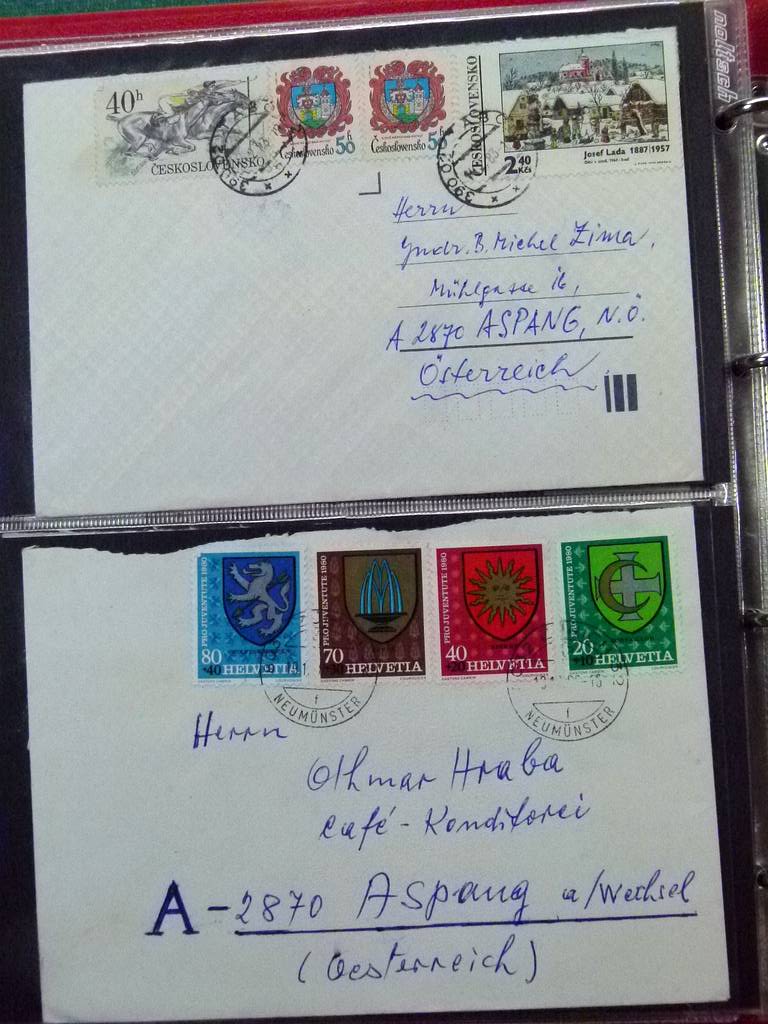 40h
ČESKOSLOVENSKO
Československo 50h
Československo 50h
ČESKOSLOVENSKO
2.40 Kčs
Josef Lada 1887|1957
390 02
390 02
Herrn
B. Michel Zima,
Mühlgasse 16,
A 2870 ASPANG, N.Ö.
Österreich
PRO JUVENTUTE 1980
80
+40 HELVETIA
PRO JUVENTUTE 1980
70
HELVETIA
PRO JUVENTUTE 1980
40
HELVETIA
PRO JUVENTUTE 1980
20
+10 HELVETIA
NEUMÜNSTER
NEUMÜNSTER
Herrn
Othmar Hraba
Café - Konditorei
A - 2870 Aspang a/Wechsel
(Oesterreich)